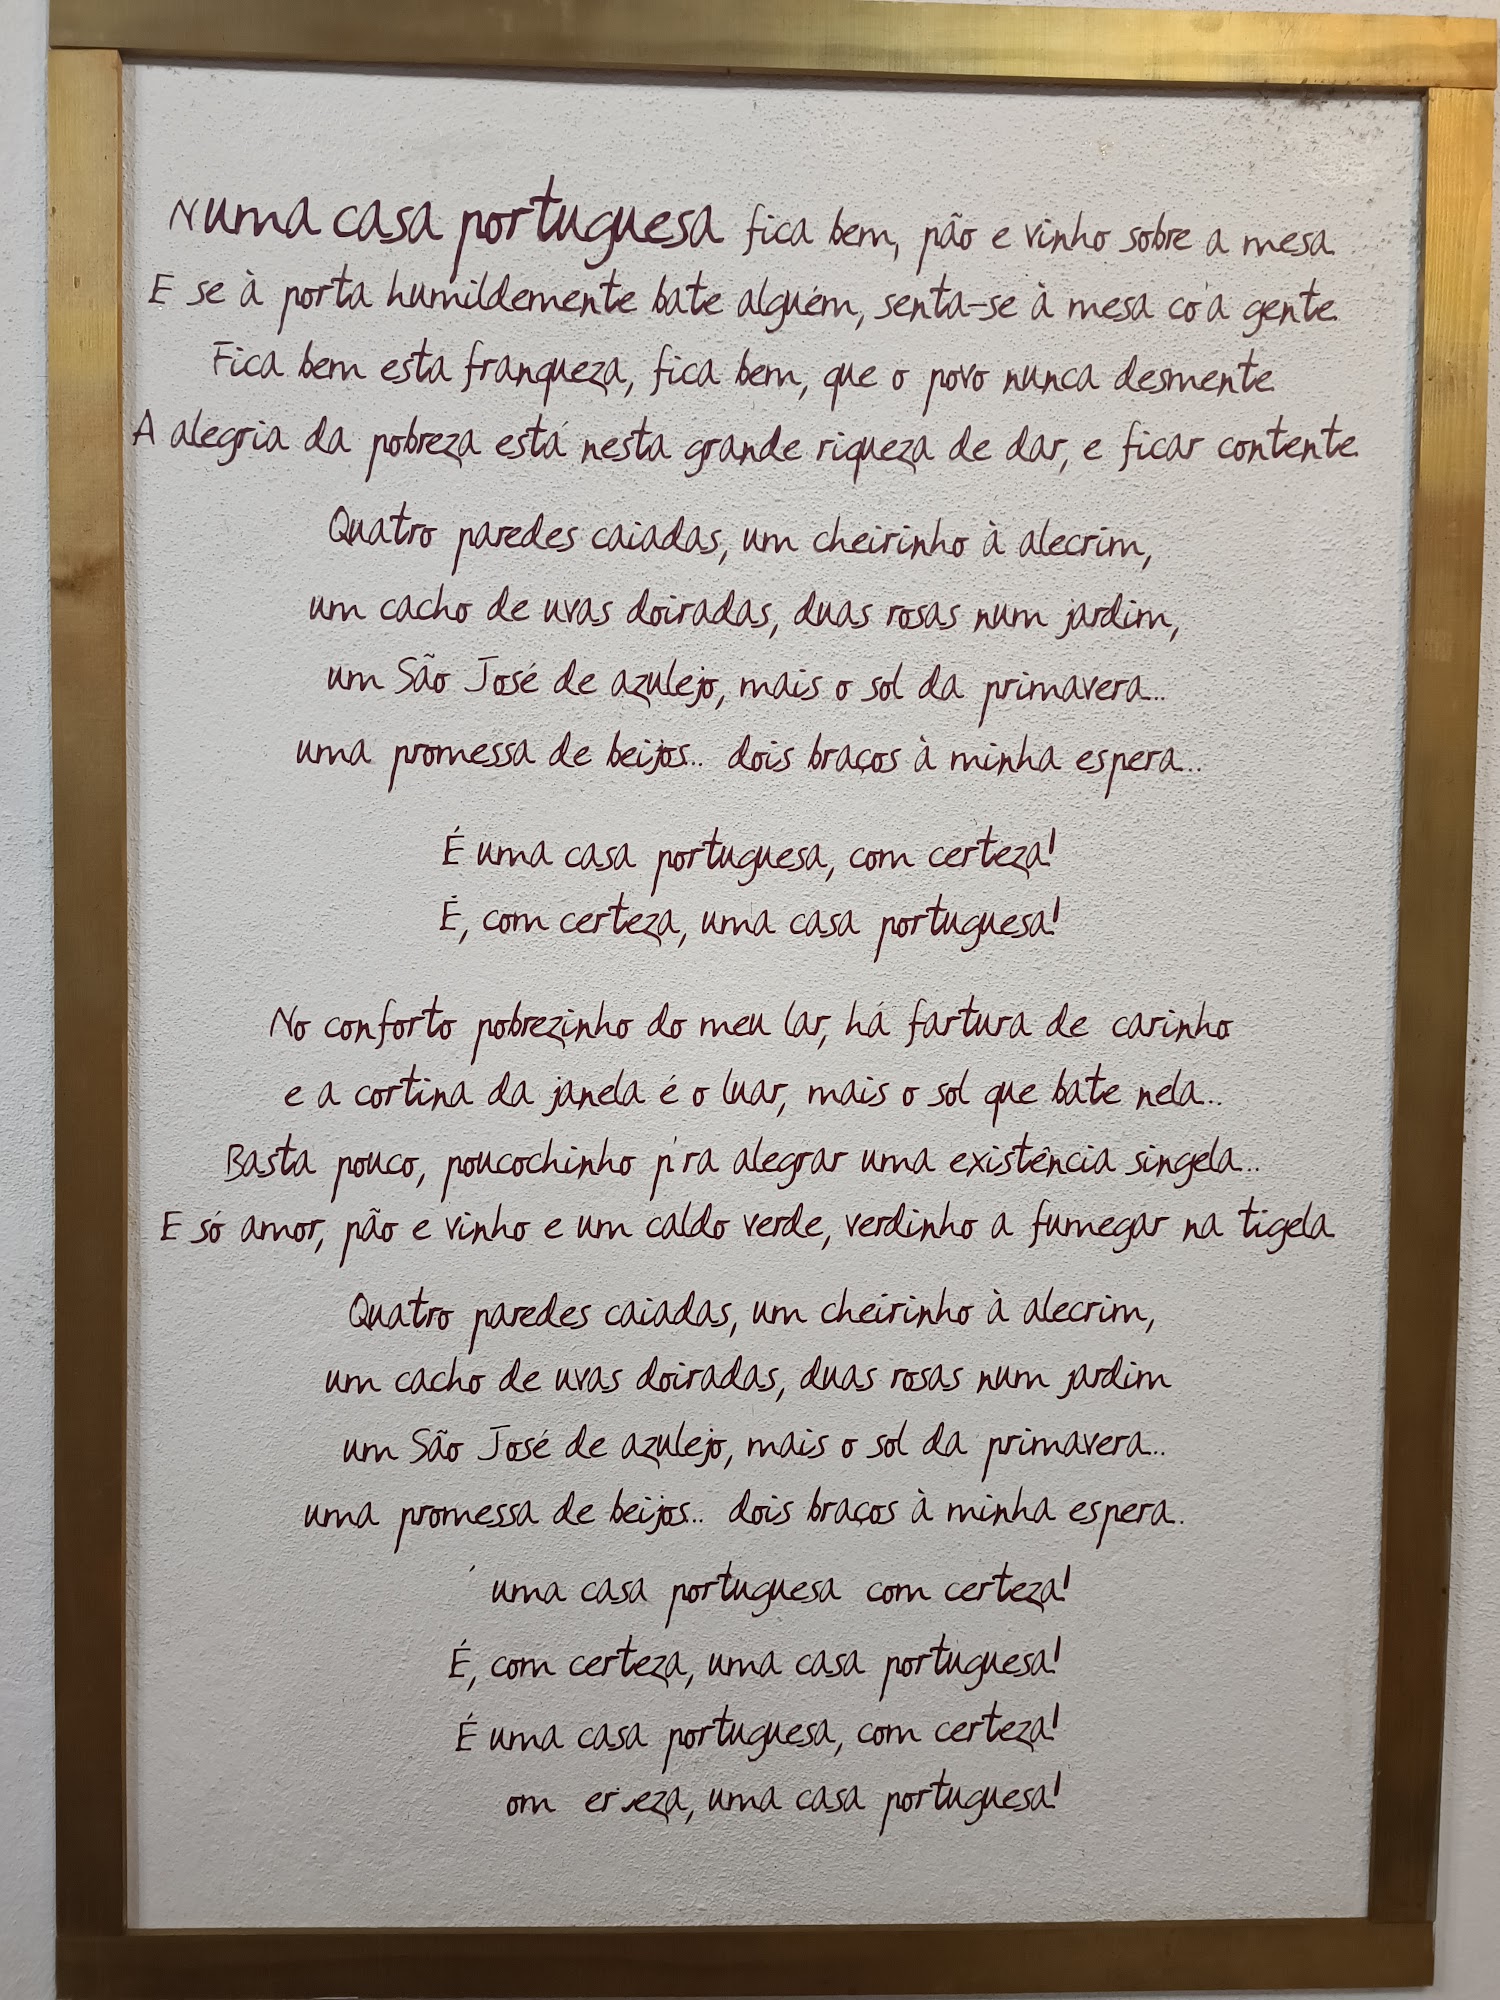 Numa casa portuguesa fica bem, pão e vinho sobre a mesa.
E se à porta humildemente bate alguém, senta-se à mesa co'a gente.
Fica bem esta franqueza, fica bem, que o povo nunca desmente.
A alegria da pobreza está nesta grande riqueza de dar, e ficar contente.
Quatro paredes caiadas, um cheirinho à alecrim,
um cacho de uvas doiradas, duas rosas num jardim,
um São José de azulejo, mais o sol da primavera...
uma promessa de beijos... dois braços à minha espera...
É uma casa portuguesa, com certeza!
É, com certeza, uma casa portuguesa!
No conforto pobrezinho do meu lar, há fartura de carinho
e a cortina da janela é o luar, mais o sol que bate nela...
Basta pouco, poucochinho p'ra alegrar uma existência singela...
E só amor, pão e vinho e um caldo verde, verdinho a fumegar na tigela.
Quatro paredes caiadas, um cheirinho à alecrim,
um cacho de uvas doiradas, duas rosas num jardim
um São José de azulejo, mais o sol da primavera...
uma promessa de beijos... dois braços à minha espera.
uma casa portuguesa com certeza!
É, com certeza, uma casa portuguesa!
É uma casa portuguesa, com certeza!
om er eza, uma casa portuguesa!